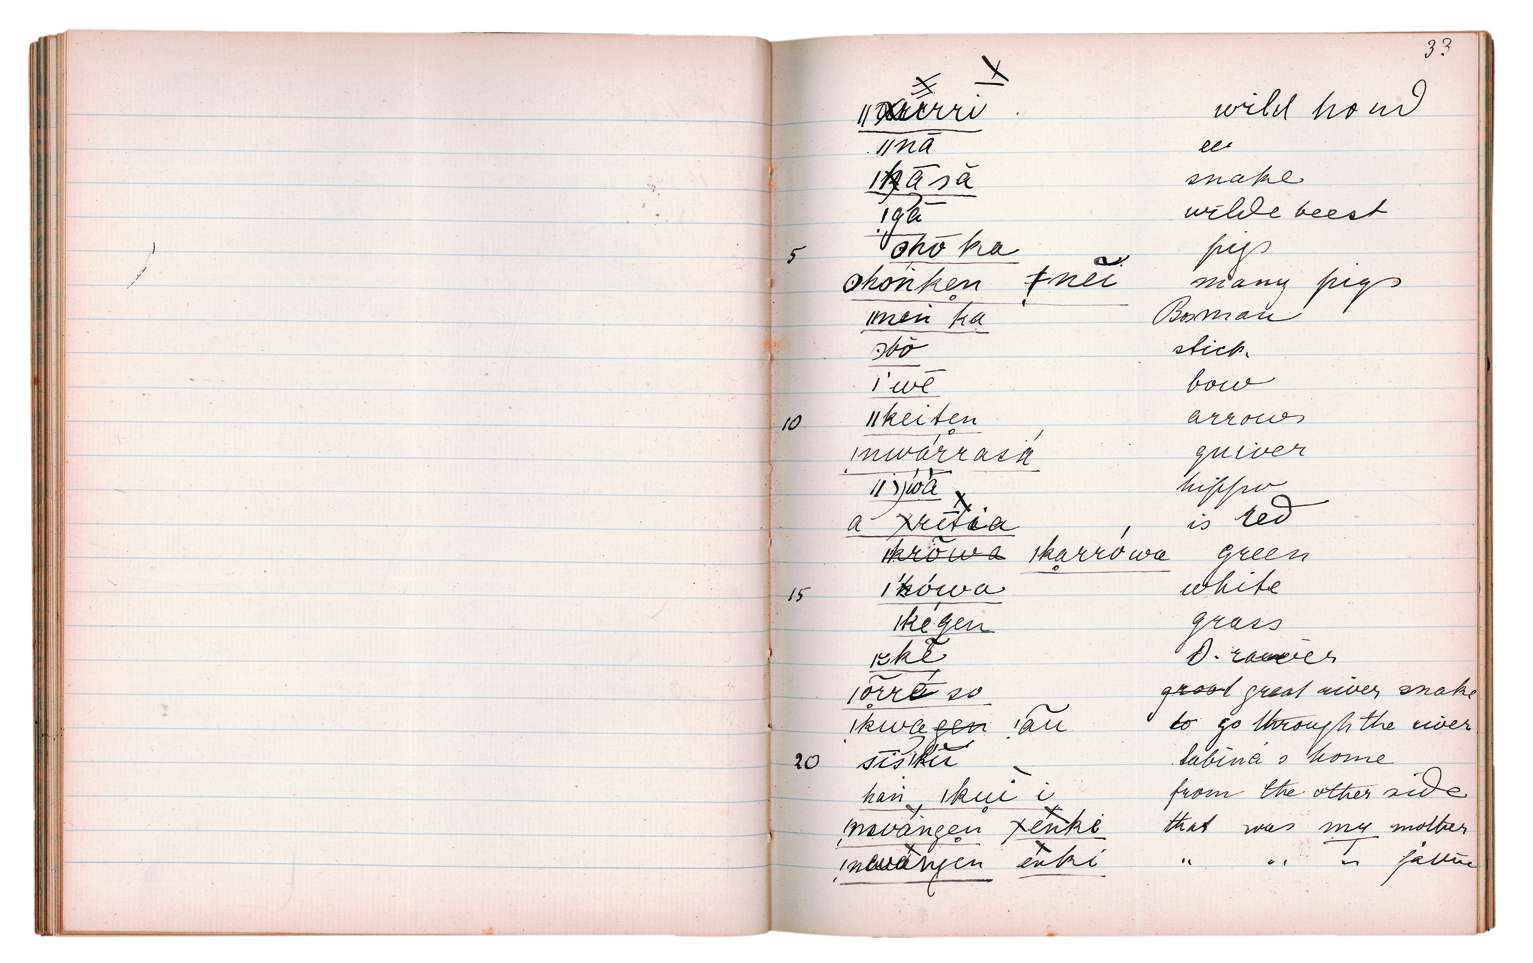 33
wild hound
ǁnā ee
ǀkāsā snake
ǃgā wildebeest
5 ʘhō ka pigs
ʘhóṅken ǂnĕĭ many pigs
ǁneiṅ ka Bosman
ʘbō stick.
ǀ'wē bow
10 ǁkeiten arrows
ǃnwárrasá quiver
hippo
a χrītia is red
ǁkrōwa ǀkarrówa green
15 ǀkówa white
ǀkégen grass
ǀkē D. ravier
ǀōrrĕ so groot great river snake
ǃkwagen ǃāu to go through the river
20 sīsǀkū Sabina's home
haṅ ǀkuì i from the other side
ǃnwáṅgeṅ χéṅki that was my mother
ǃnwáṅgen éṅki " " " fattie